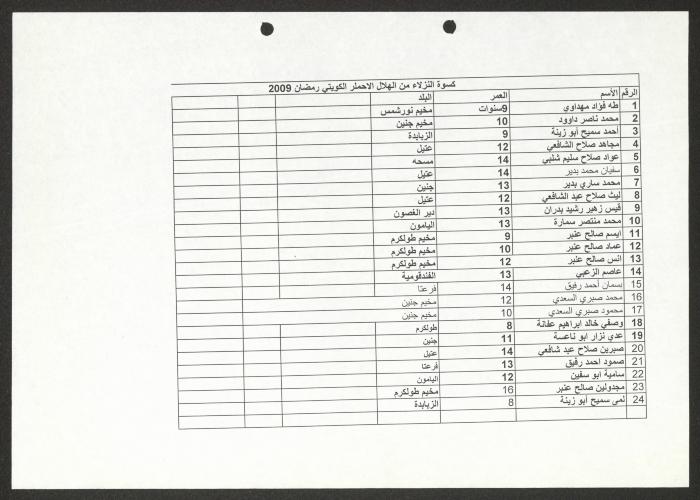 كسوة النزلاء من الهلال الاحملر الكويتي رمضان 2009
الرقم الأسم العمر البلد
1 طه فؤاد مهداوي 9سنوات مخيم نورشمس
2 محمد ناصر داوود 10 مخيم جنين
3 أحمد سميح أبو زينة 9 الزبابدة
4 مجاهد صلاح الشافعي 12 عتيل
5 عواد صلاح سليم شلبي 14 مسحه
6 سفيان محمد بدير 14 عتيل
7 محمد ساري بدير 13 جنين
8 ليث صلاح عبد الشافعي 12 عتيل
9 قيس زهير رشيد بدران 13 دير الغصون
10 محمد منتصر سمارة 13 اليامون
11 ايسم صالح عنبر 9 مخيم طولكرم
12 عماد صالح عنبر 10 مخيم طولكرم
13 انس صالح عنبر 12 مخيم طولكرم
14 عاصم الزعبي 13 الفندقومية
15 بسمان أحمد رفيق 14 فرعتا
16 محمد صبري السعدي 12 مخيم جنين
17 محمود صبري السعدي 10 مخيم جنين
18 وصفي خالد ابراهيم عفانة 8 طولكرم
19 عدي نزار ابو ناعسة 11 جنين
20 صبرين صلاح عبد شافعي 14 عتيل
21 صمود احمد رفيق 13 فرعتا
22 سامية ابو سفين 12 اليامون
23 مجدولين صالح عنبر 16 مخيم طولكرم
24 لمى سميح أبو زينة 8 الزبابدة